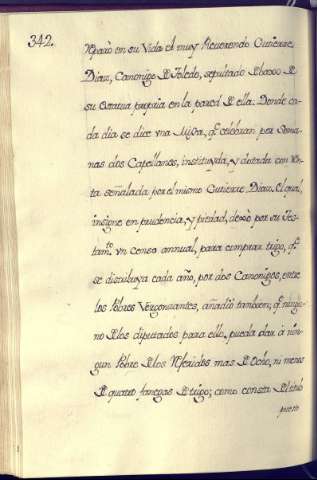 342.
Reparò en su Vida el muy Reverendo Gutierre
Diaz, Canonigo D Toledo, sepultado Dbaxo D
su Estatua propria en la pared D ella: Donde ca-
da dia se dice vna Missa, q.e celebran por Sema-
nas dos Capellanes, instituyda, y dotada con Rn-
ta señalada por el mismo Gutierre Diaz. El qual,
insigne en prudencia, y piedad, dexò por su Tes-
tam.to vn censo annual, para comprar trigo, q.e
se distribuya cada año, por dos Canonigos, entre
los Pobres Vergonzantes, añadiò tambien; q.e ningu-
no D los diputados para ello, pueda dar à nin-
gun Pobre D los Rferidos mas D Ocho, ni menos
D quatro fanegas D trigo; como consta D el
puesto